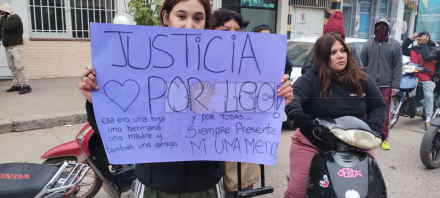 JUSTICIA
POR LEO!
Ella era una hija
una hermana
una madre y
también una amiga.
y por todas...
Siempre Presente
NI UNA MENOS
HONDA
JESÚS